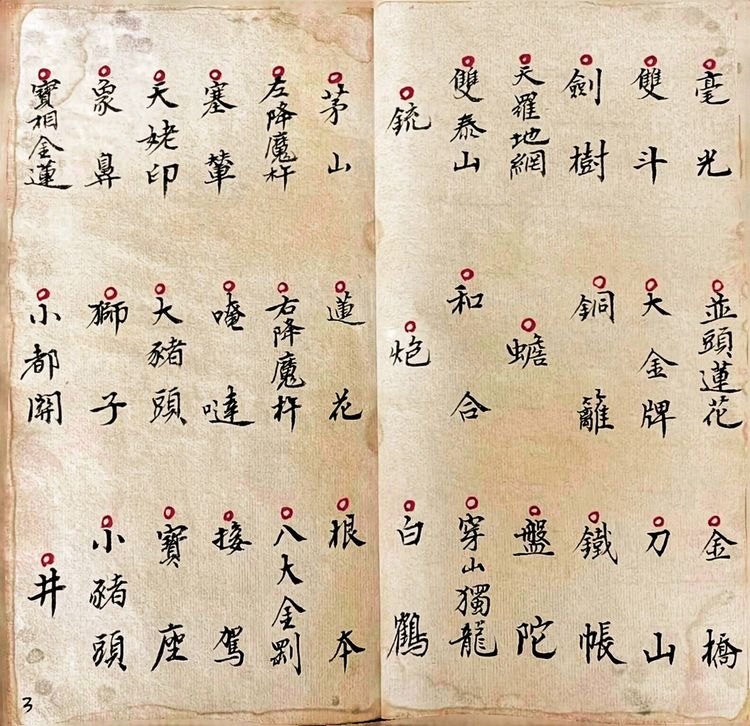 毫光 並頭蓮花 金橋
雙斗 大金牌 刀山
劍樹 銅籬 鐵帳
天羅地網 蟾 盤陀
雙泰山 和合 穿山獨龍
銃 炮 白鶴
茅山 蓮花 根本
左降魔杵 右降魔杵 八大金剛
塞 唵噠 接駕
天姥印 大豬頭 寶座
象鼻 獅子 小豬頭
寶相金蓮 小都開 井
3